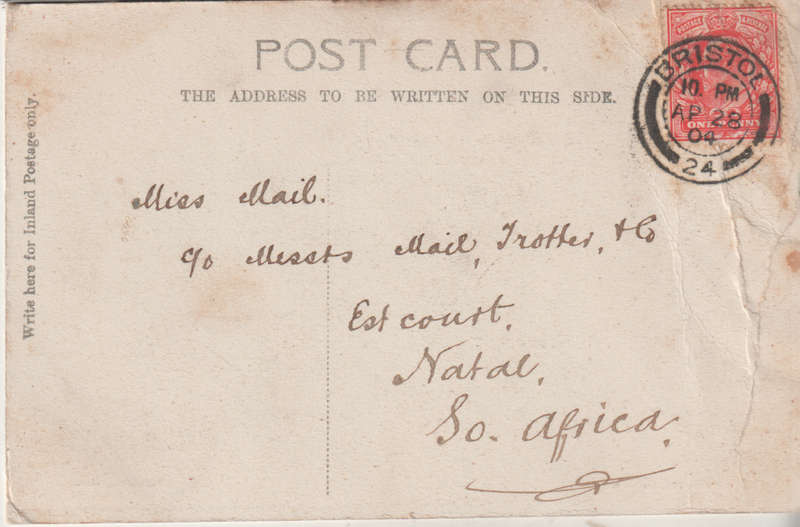 POST CARD.
THE ADDRESS TO BE WRITTEN ON THIS SIDE.
Write here for Inland Postage only.
POSTAGE REVENUE
ONE PENNY
BRISTOL
10 PM
AP 28
04
24
Miss Mail.
c/o Messrs Mail, Trotter, & Co
Estcourt,
Natal,
So. Africa,